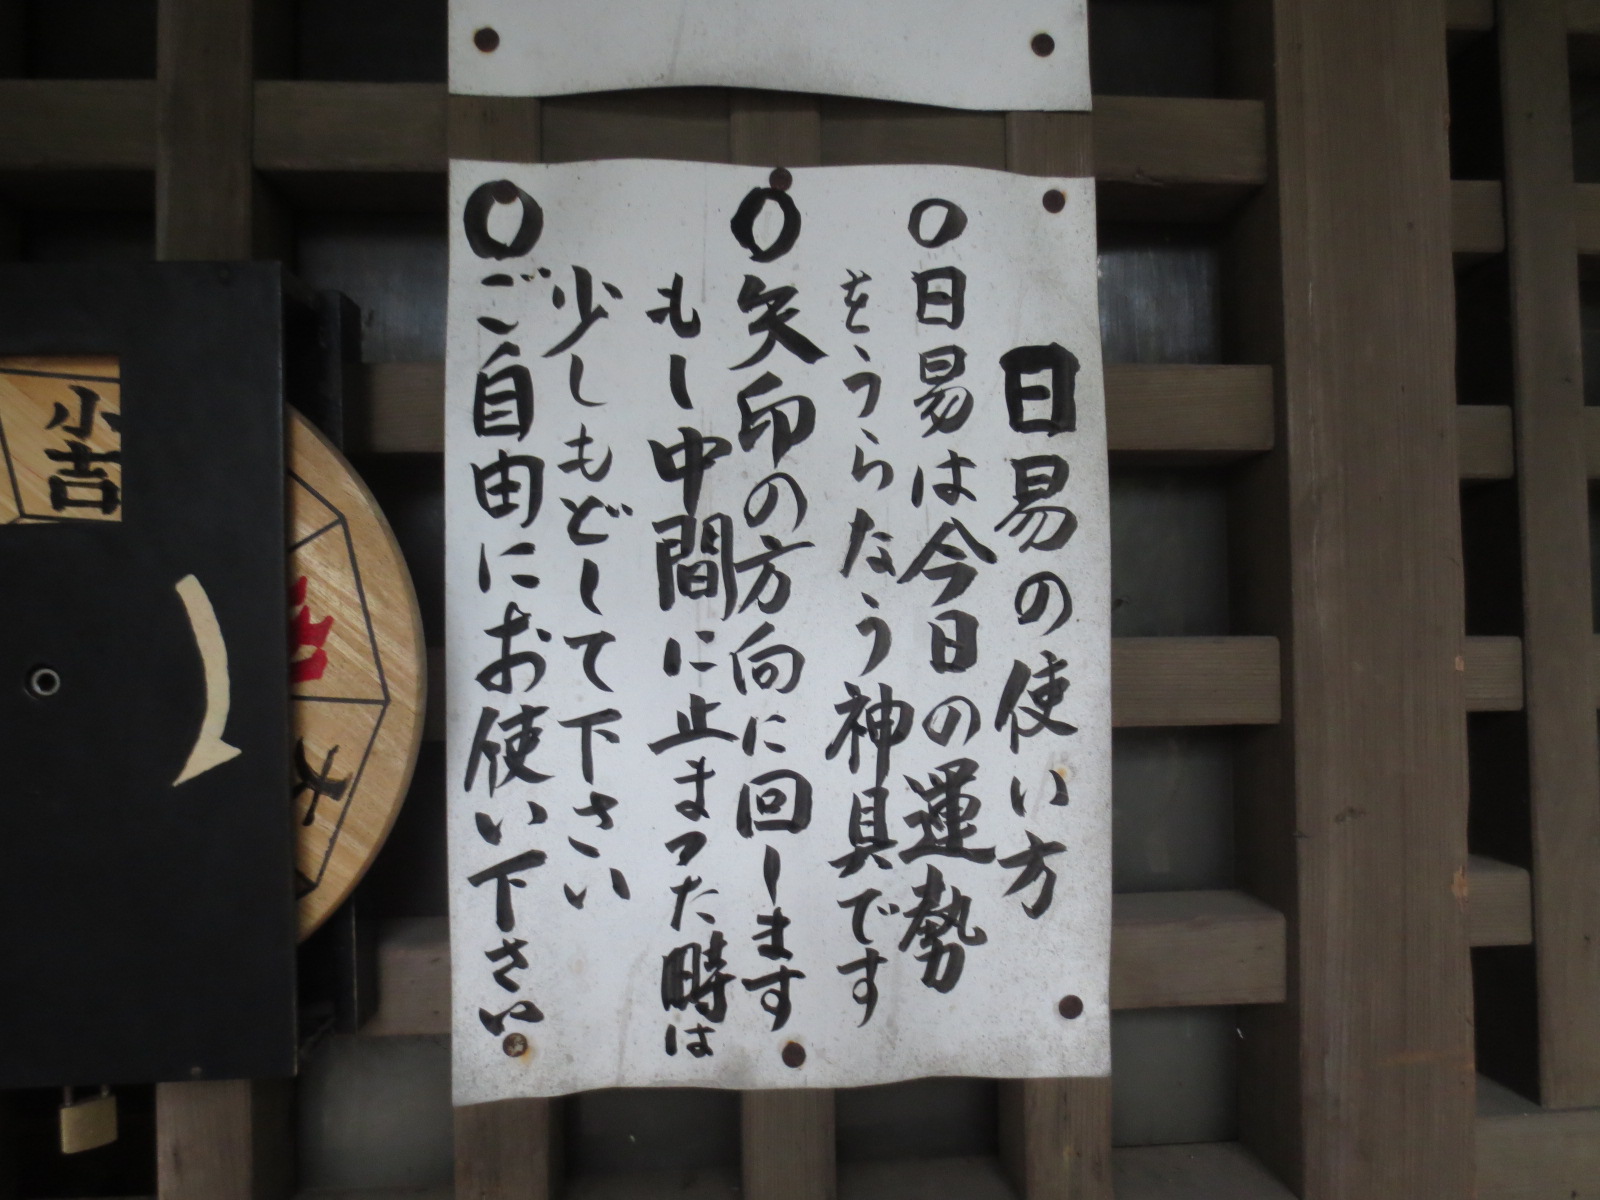 日易の使い方
○日易は今日の運勢
をうらなう神具です
○矢印の方向に回します
もし中間に止まった時は
少しもどして下さい
○ご自由にお使い下さい
小吉
大